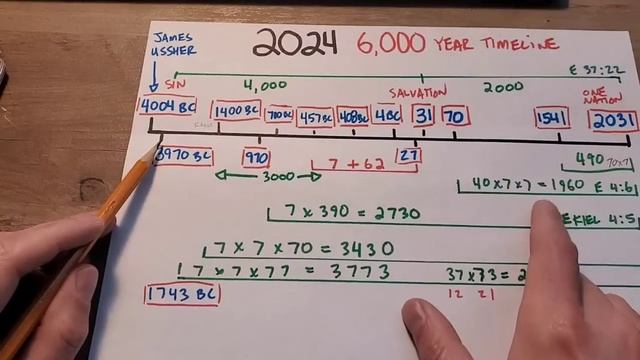 JAMES
USSHER
2024 6,000 YEAR TIMELINE
SIN
4,000
SALVATION
2000
E 37:22
ONE
NATION
4004 BC
1400 BC
457 BC
408 BC
4 BC
31
70
1541
2031
3970 BC
970
3000
7 + 62
27
490
70x7
40 x 7 x 7 = 1960 E 4:6
7 x 390 = 2730
EKIEL 4:5
7 x 7 x 70 = 3430
7 x 7 x 77 = 3773
37 x 73 = 2
12 21
1743 BC